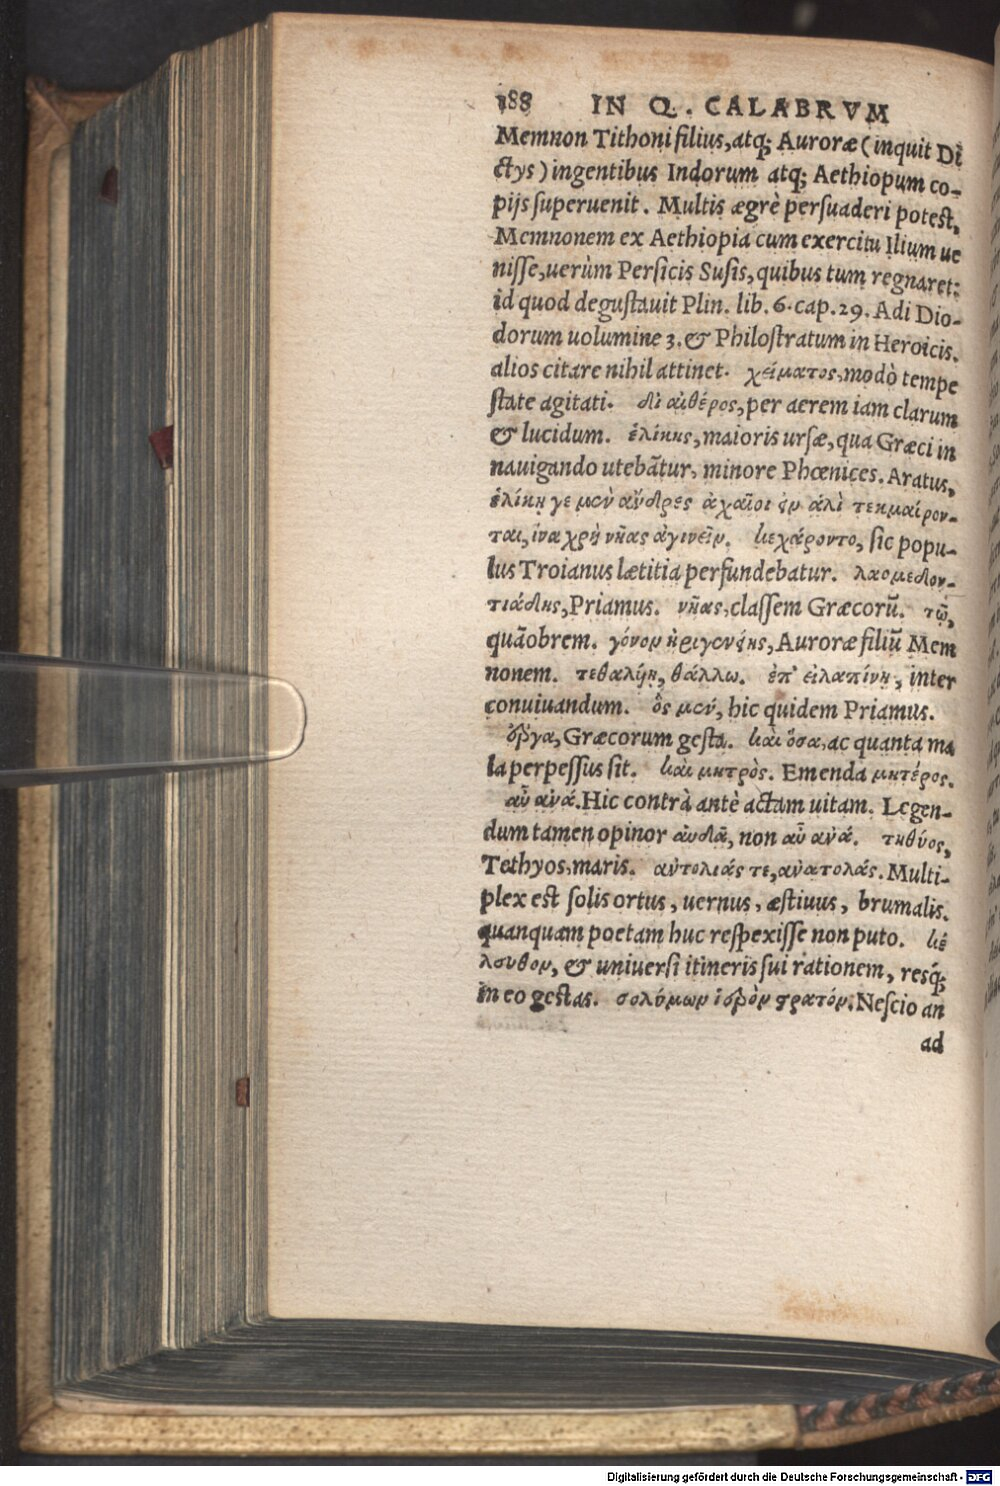 188 IN Q. CALABRVM
Memnon Tithoni filius, atq; Auroræ (inquit Di
ctys) ingentibus Indorum atq; Aethiopum co-
pijs superuenit. Multis ægrè persuaderi potest,
Memnonem ex Aethiopia cum exercitu Ilium ue
nisse, uerùm Persicis Susis, quibus tum regnaret:
id quod degustauit Plin. lib. 6. cap. 29. Adi Dio-
dorum uolumine 3. & Philostratum in Heroicis.
alios citare nihil attinet. χείματος, modò tempe
state agitati. δι' αἰθέρος, per aerem iam clarum
& lucidum. ἑλίκης, maioris ursæ, qua Græci in
nauigando utebãtur, minore Phœnices. Aratus,
ἑλίκη γε μὲν ἄνδρες ἀχαιοὶ ἐν ἁλὶ τεκμαίρον-
ται, ἵνα χρὴ νῆας ἀγινεῖν. κεχάροντο, sic popu-
lus Troianus lætitia perfundebatur. λαομεδον-
τιάδης, Priamus. νῆας, classem Græcorũ. τῷ,
quãobrem. γόνον ἠριγενείης, Auroræ filiũ Mem
nonem. τεθαλυίη, θάλλω. ἐπ' εἰλαπίνη, inter
conuiuandum. ὃς μὲν, hic quidem Priamus.
ἔργα, Græcorum gesta. καὶ ὅσα, ac quanta ma
la perpessus sit. καὶ μητρὸς. Emenda μητέρος.
αὖ ἀνά. Hic contrà antè actam uitam. Legen-
dum tamen opinor αὐδᾶ, non αὖ ἀνά. τηθύος,
Tethyos, maris. ἀντολιάς τε, ἀνατολάς. Multi-
plex est solis ortus, uernus, æstiuus, brumalis.
quanquam poetam huc respexisse non puto. κέ
λευθον, & uniuersi itineris sui rationem, resq́;
in eo gestas. σολύμων ἱερὸν στρατόν. Nescio an
ad
Digitalisierung gefördert durch die Deutsche Forschungsgemeinschaft - DFG